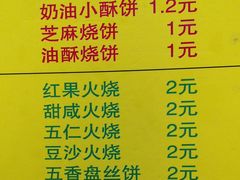 奶油小酥饼 1.2元
芝麻烧饼 1元
油酥烧饼 1元
红果火烧 2元
甜咸火烧 2元
五仁火烧 2元
豆沙火烧 2元
五香盘丝饼 2元